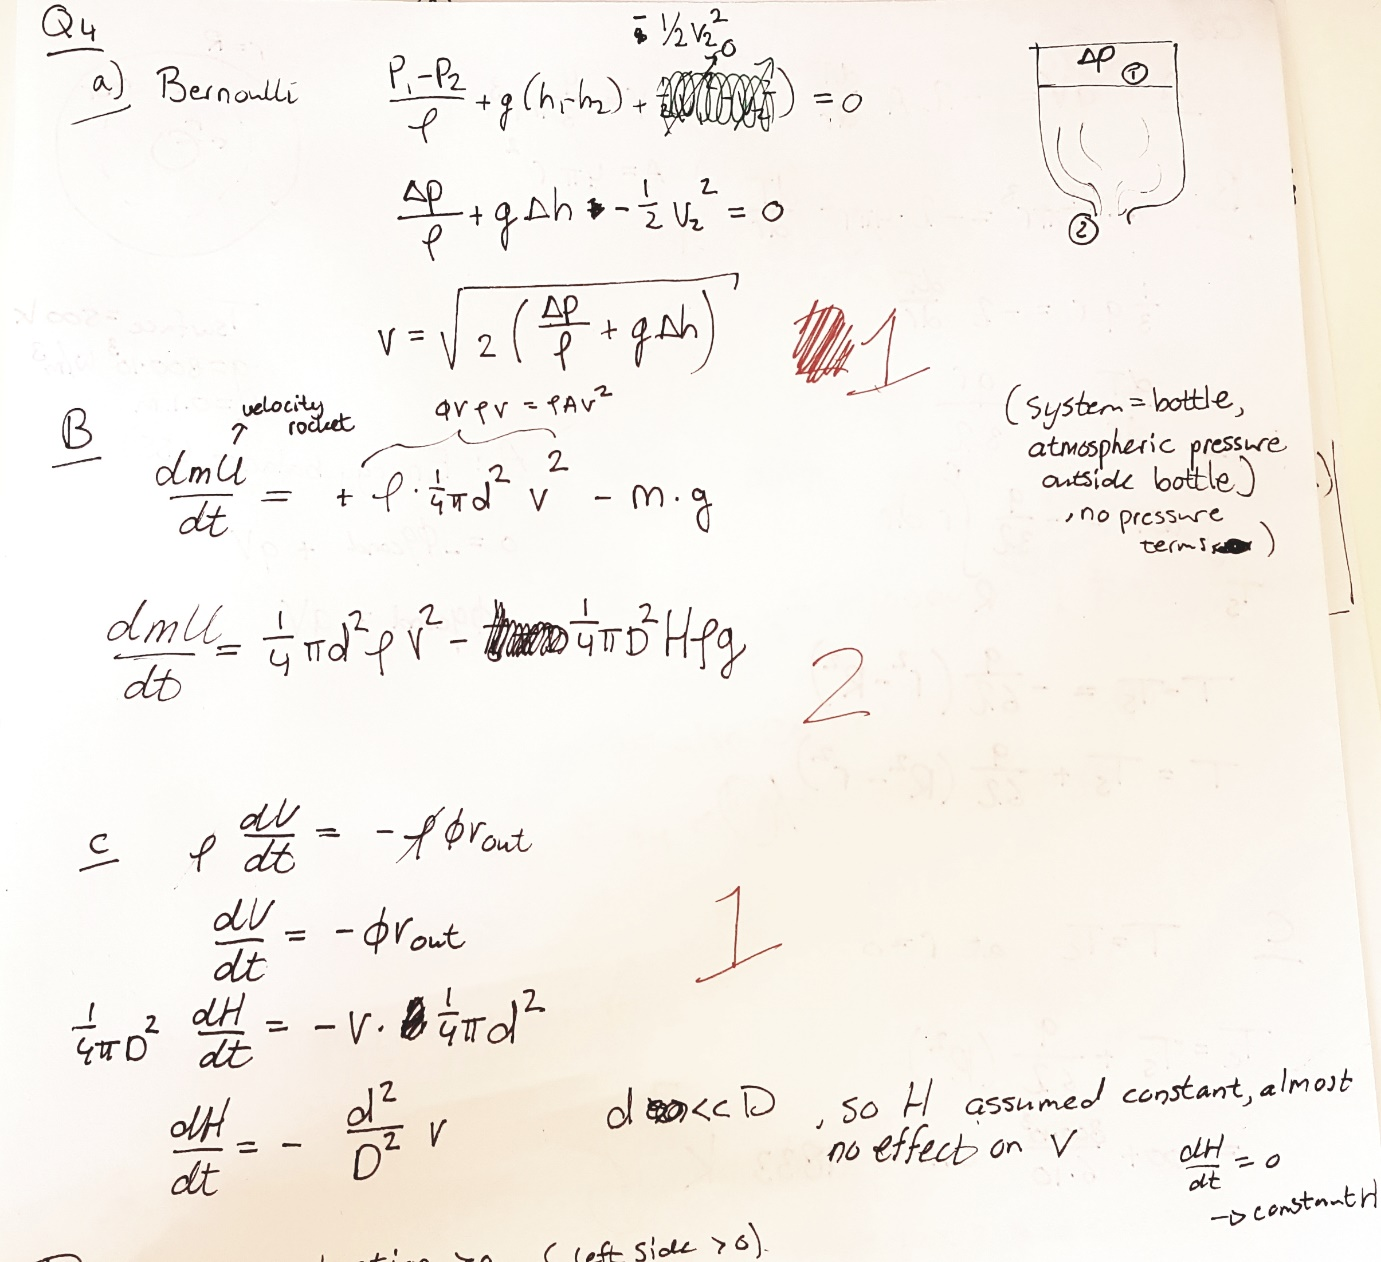 Q4
a) Bernoulli
- 1/2 V₂²
(P₁-P₂)/ρ + g(h₁-h₂) + ) = 0
ΔP ①
②
Δp/ρ + gΔh - 1/2 V₂² = 0
V = √(2(ΔP/ρ + gΔh))
1
B
velocity rocket
ϕv ρv = ρAv²
dmU/dt = + ρ · 1/4 π d² v² - m·g
(system = bottle,
atmospheric pressure
outside bottle)
, no pressure
terms )
dmU/dt = 1/4 π d² ρ V² - 1/4 π D² H ρ g
2
C
ρ dV/dt = - ρ ϕv out
dV/dt = - ϕv out
1
1/4 π D² dH/dt = - V · 1/4 π d²
dH/dt = - d²/D² V
d << D , so H assumed constant, almost
no effect on V
dH/dt = 0
→ constant H
(left side > 0).